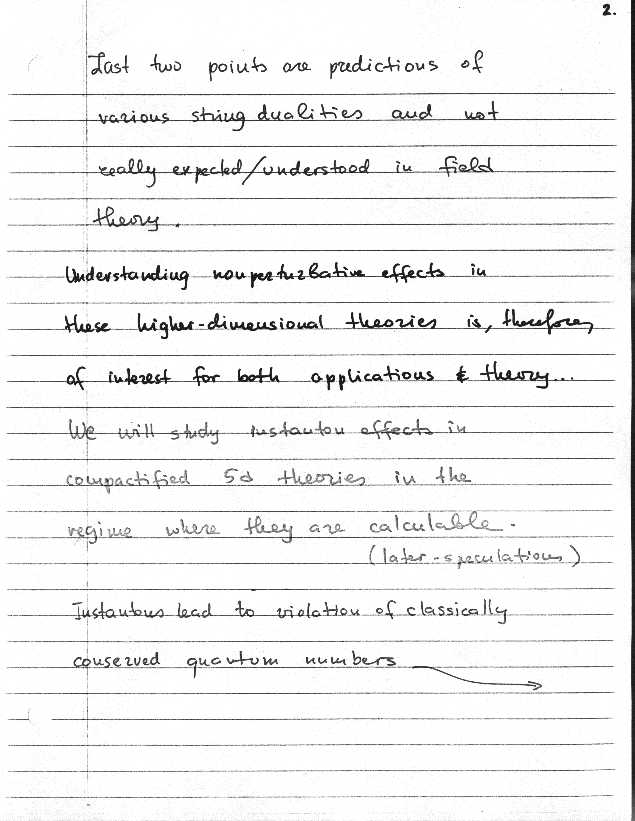 2.
Last two points are predictions of
various string dualities and not
really expected/understood in field
theory.
Understanding nonperturbative effects in
these higher-dimensional theories is, therefore,
of interest for both applications & theory...
We will study instanton effects in
compactified 5d theories in the
regime where they are calculable.
(later-speculations)
Instantons lead to violation of classically
conserved quantum numbers